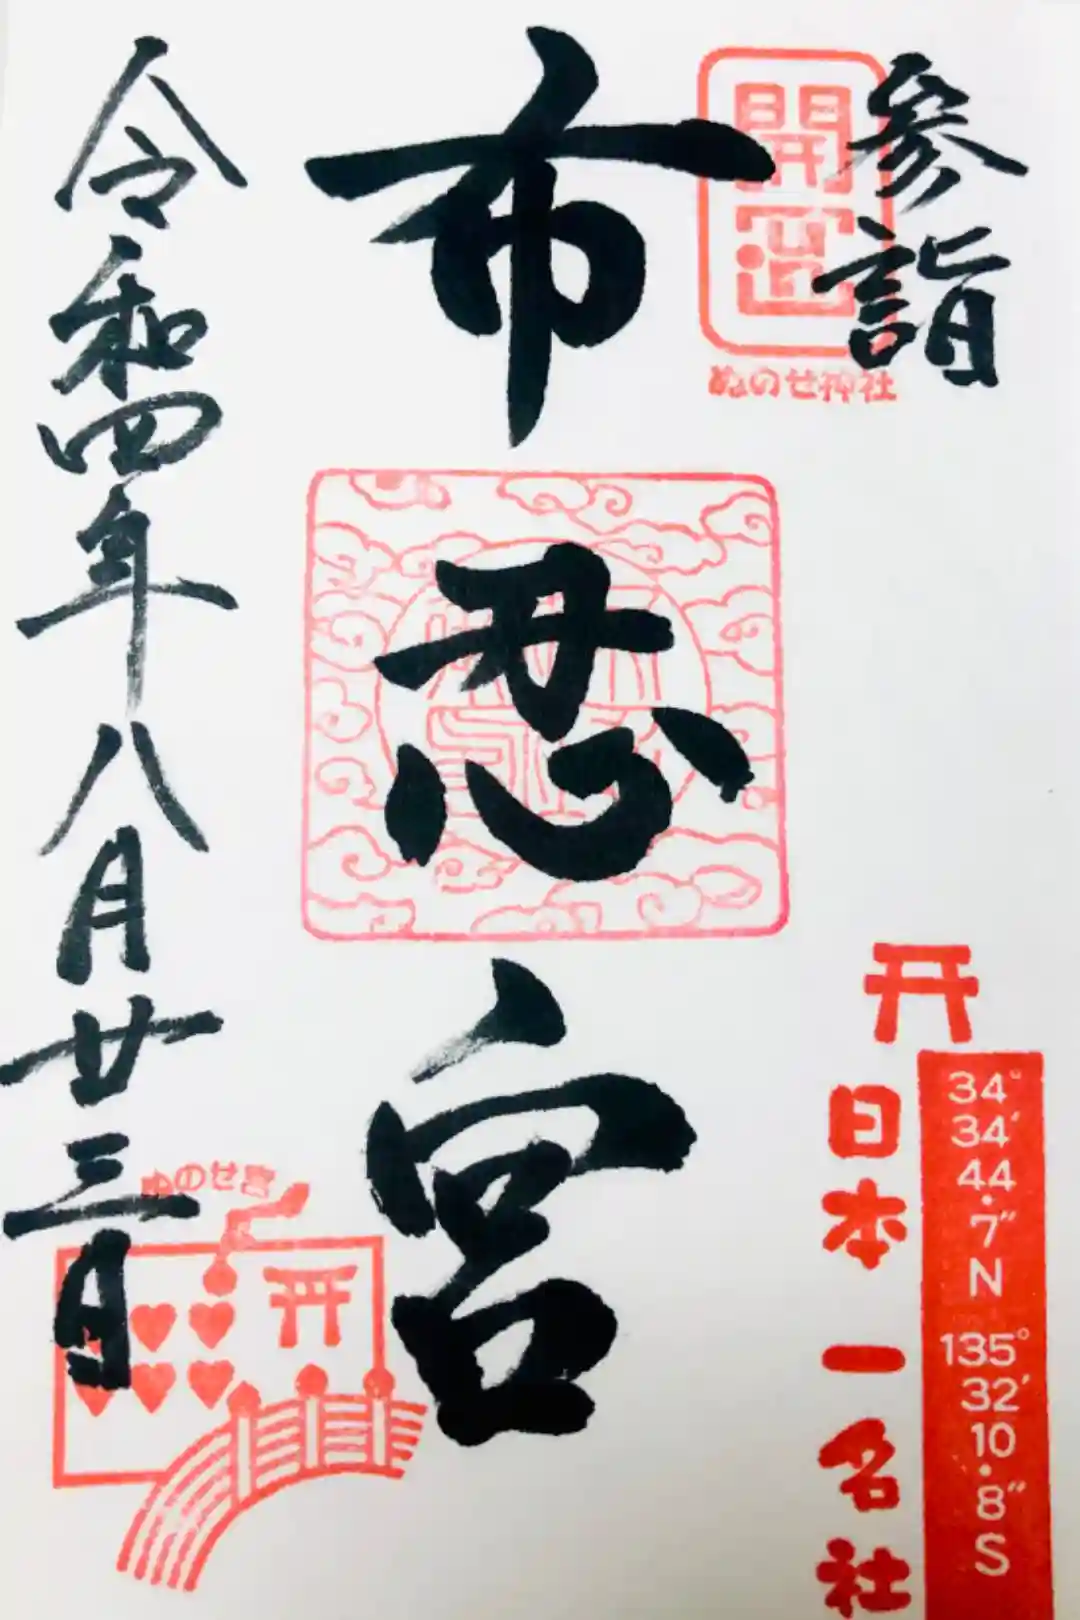 参詣
開運
ぬのせ神社
布忍宮
令和四年八月廿三日
ぬのせ宮
日本一名社
34°
34′
44.
7″
N
135°
32′
10.
8″
S